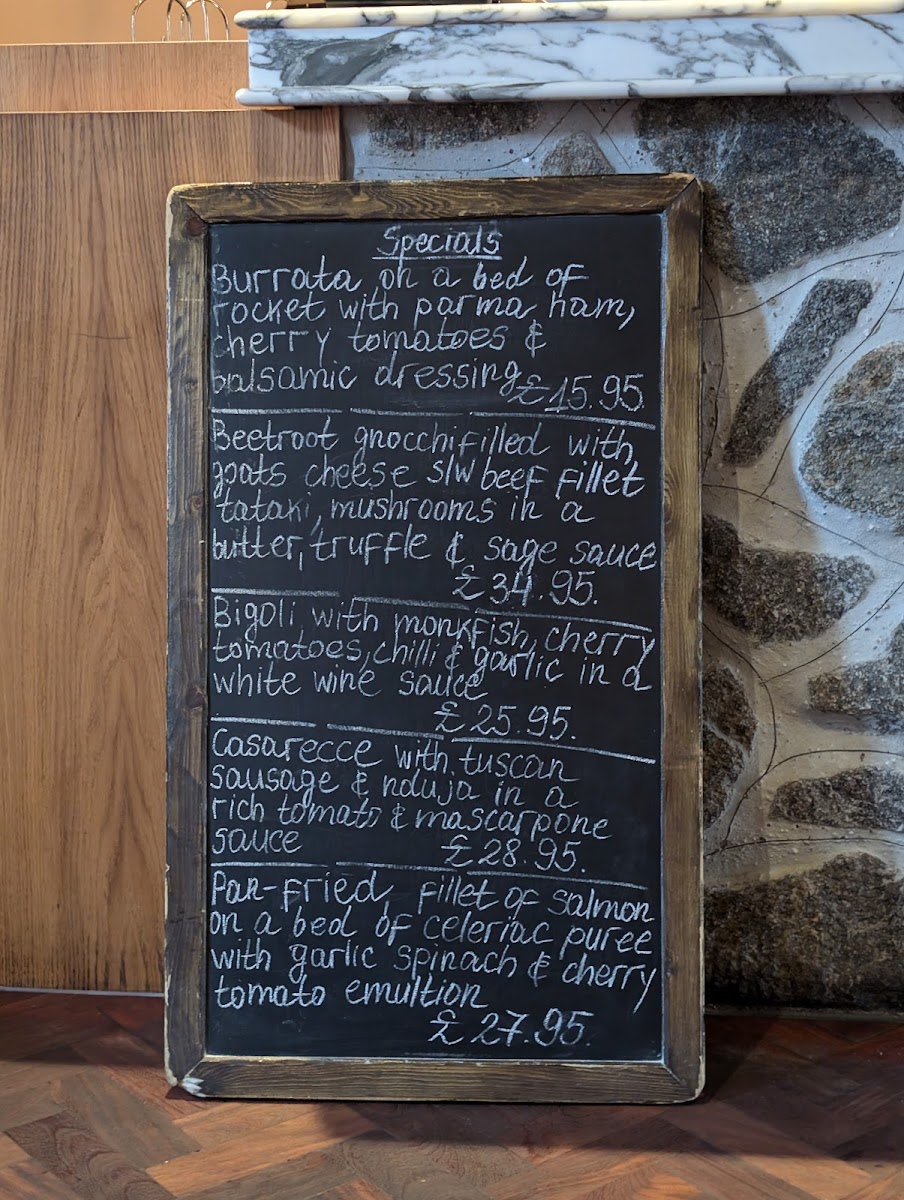 Specials
Burrata on a bed of
rocket with parma ham,
cherry tomatoes &
balsamic dressing £15.95
Beetroot gnocchi filled with
goats cheese s/w beef fillet
tataki, mushrooms in a
butter, truffle & sage sauce
£34.95.
Bigoli with monkfish, cherry
tomatoes, chilli & garlic in a
white wine sauce
£25.95.
Casarecce with tuscan
sausage & nduja in a
rich tomato & mascarpone
sauce £28.95.
Pan-fried fillet of salmon
on a bed of celeriac puree
with garlic spinach & cherry
tomato emultion
£27.95.